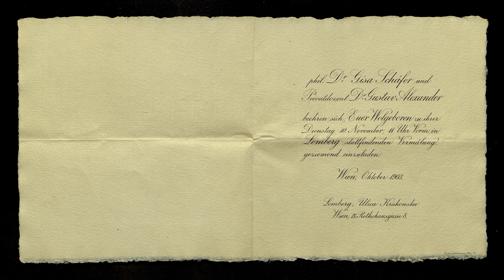 phil. Dr. Gisa Schäfer und
Privatdozent Dr. Gustav Alexander
beehren sich, Euer Wolgeboren zu ihrer
Dienstag 10. November, 11 Uhr Vorm. in
Lemberg stattfindenden Vermälung
geziemend einzuladen.
Wien, Oktober 1903.
Lemberg, Ulica Krakowska
Wien, Rathausgasse 8.